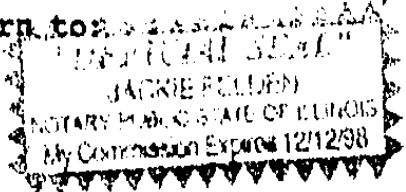 rn to:
"OFFICIAL SEAL"
JACKIE
NOTARY PUBLIC STATE OF ILLINOIS
My Commission Expires 12/12/98